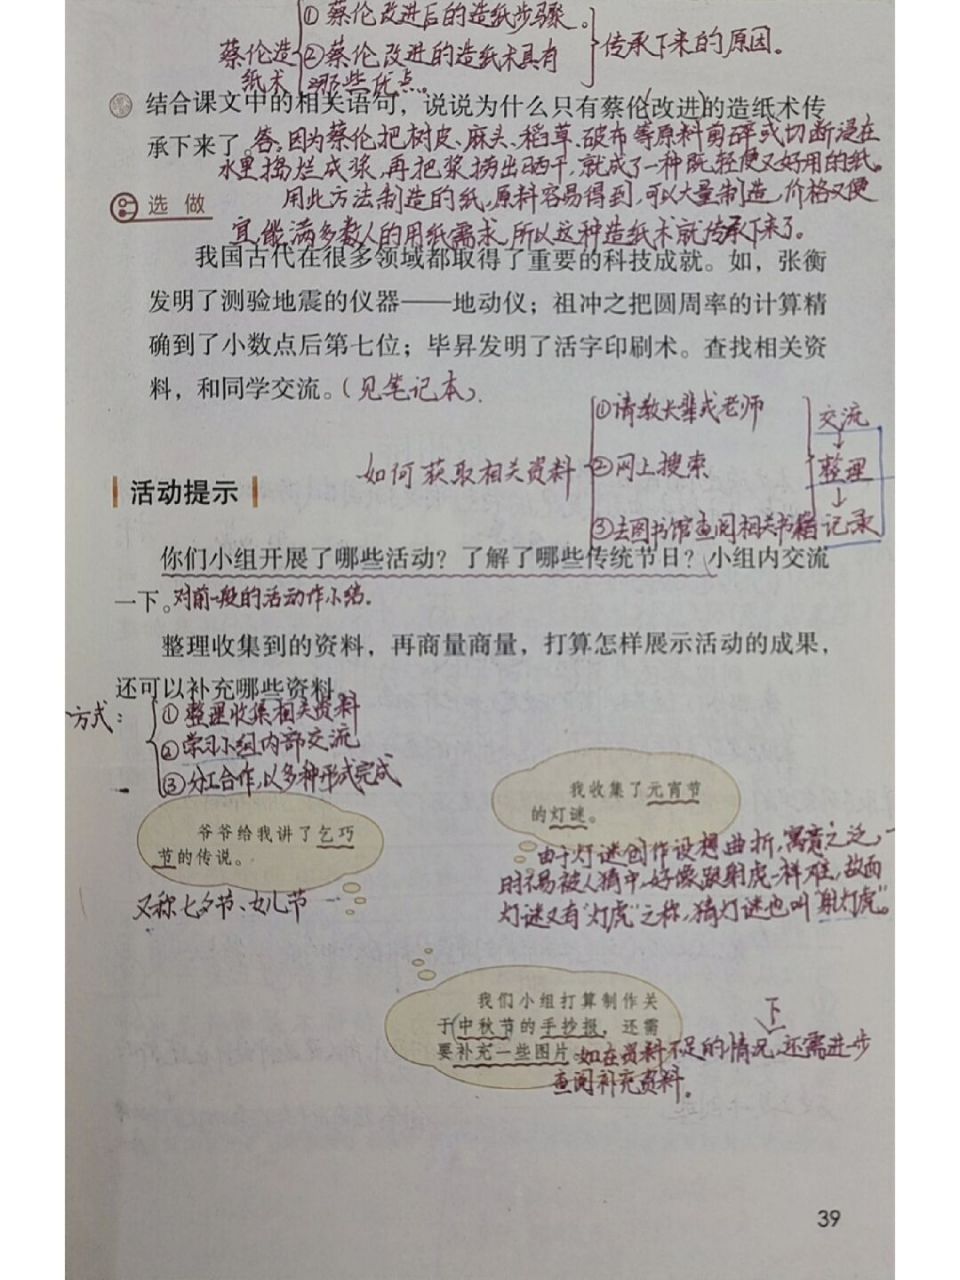 ①蔡伦改进后的造纸步骤。
蔡伦造纸术
②蔡伦改进的造纸术具有哪些优点。
传承下来的原因。
结合课文中的相关语句，说说为什么只有蔡伦改进的造纸术传
承下来了。答：因为蔡伦把树皮、麻头、稻草、破布等原料剪碎或切断浸在
水里捣烂成浆，再把浆捞出晒干，就成了一种既轻便又好用的纸。
用此方法制造的纸，原料容易得到，可以大量制造，价格又便
选做
宜，能满多数人的用纸需求，所以这种造纸术就传承下来了。
我国古代在很多领域都取得了重要的科技成就。如，张衡
发明了测验地震的仪器——地动仪；祖冲之把圆周率的计算精
确到了小数点后第七位；毕昇发明了活字印刷术。查找相关资
料，和同学交流。（见笔记本）.
如何获取相关资料
①请教长辈或老师
②网上搜索
③去图书馆查阅相关书籍
交流
↓
整理
↓
记录
活动提示
你们小组开展了哪些活动？了解了哪些传统节日？小组内交流
一下。对前一段的活动作小结.
整理收集到的资料，再商量商量，打算怎样展示活动的成果，
还可以补充哪些资料。
方式：
①整理收集相关资料
②学习小组内部交流
③分工合作，以多种形式完成
我收集了元宵节
的灯谜。
爷爷给我讲了乞巧
节的传说。
又称七夕节、女儿节
由于灯谜创作设想曲折，寓意之泛，一
时不易被人猜中，好像跟射虎一样难，故而
灯谜又有“灯虎”之称，猜灯谜也叫“射灯虎”。
我们小组打算制作关
于中秋节的手抄报，还需
要补充一些图片
下
如在资料不足的情况，还需进步
查阅补充资料。
39